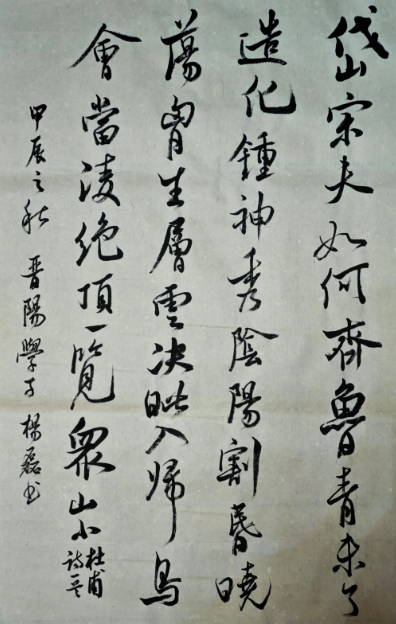 岱宗夫如何齊魯青未了
造化鍾神秀陰陽割昬曉
蕩胷生層雲決眥入歸鳥
會當淩絕頂一覽眾山小
杜甫
詩
甲辰之秋 晉陽學子 楊磊书